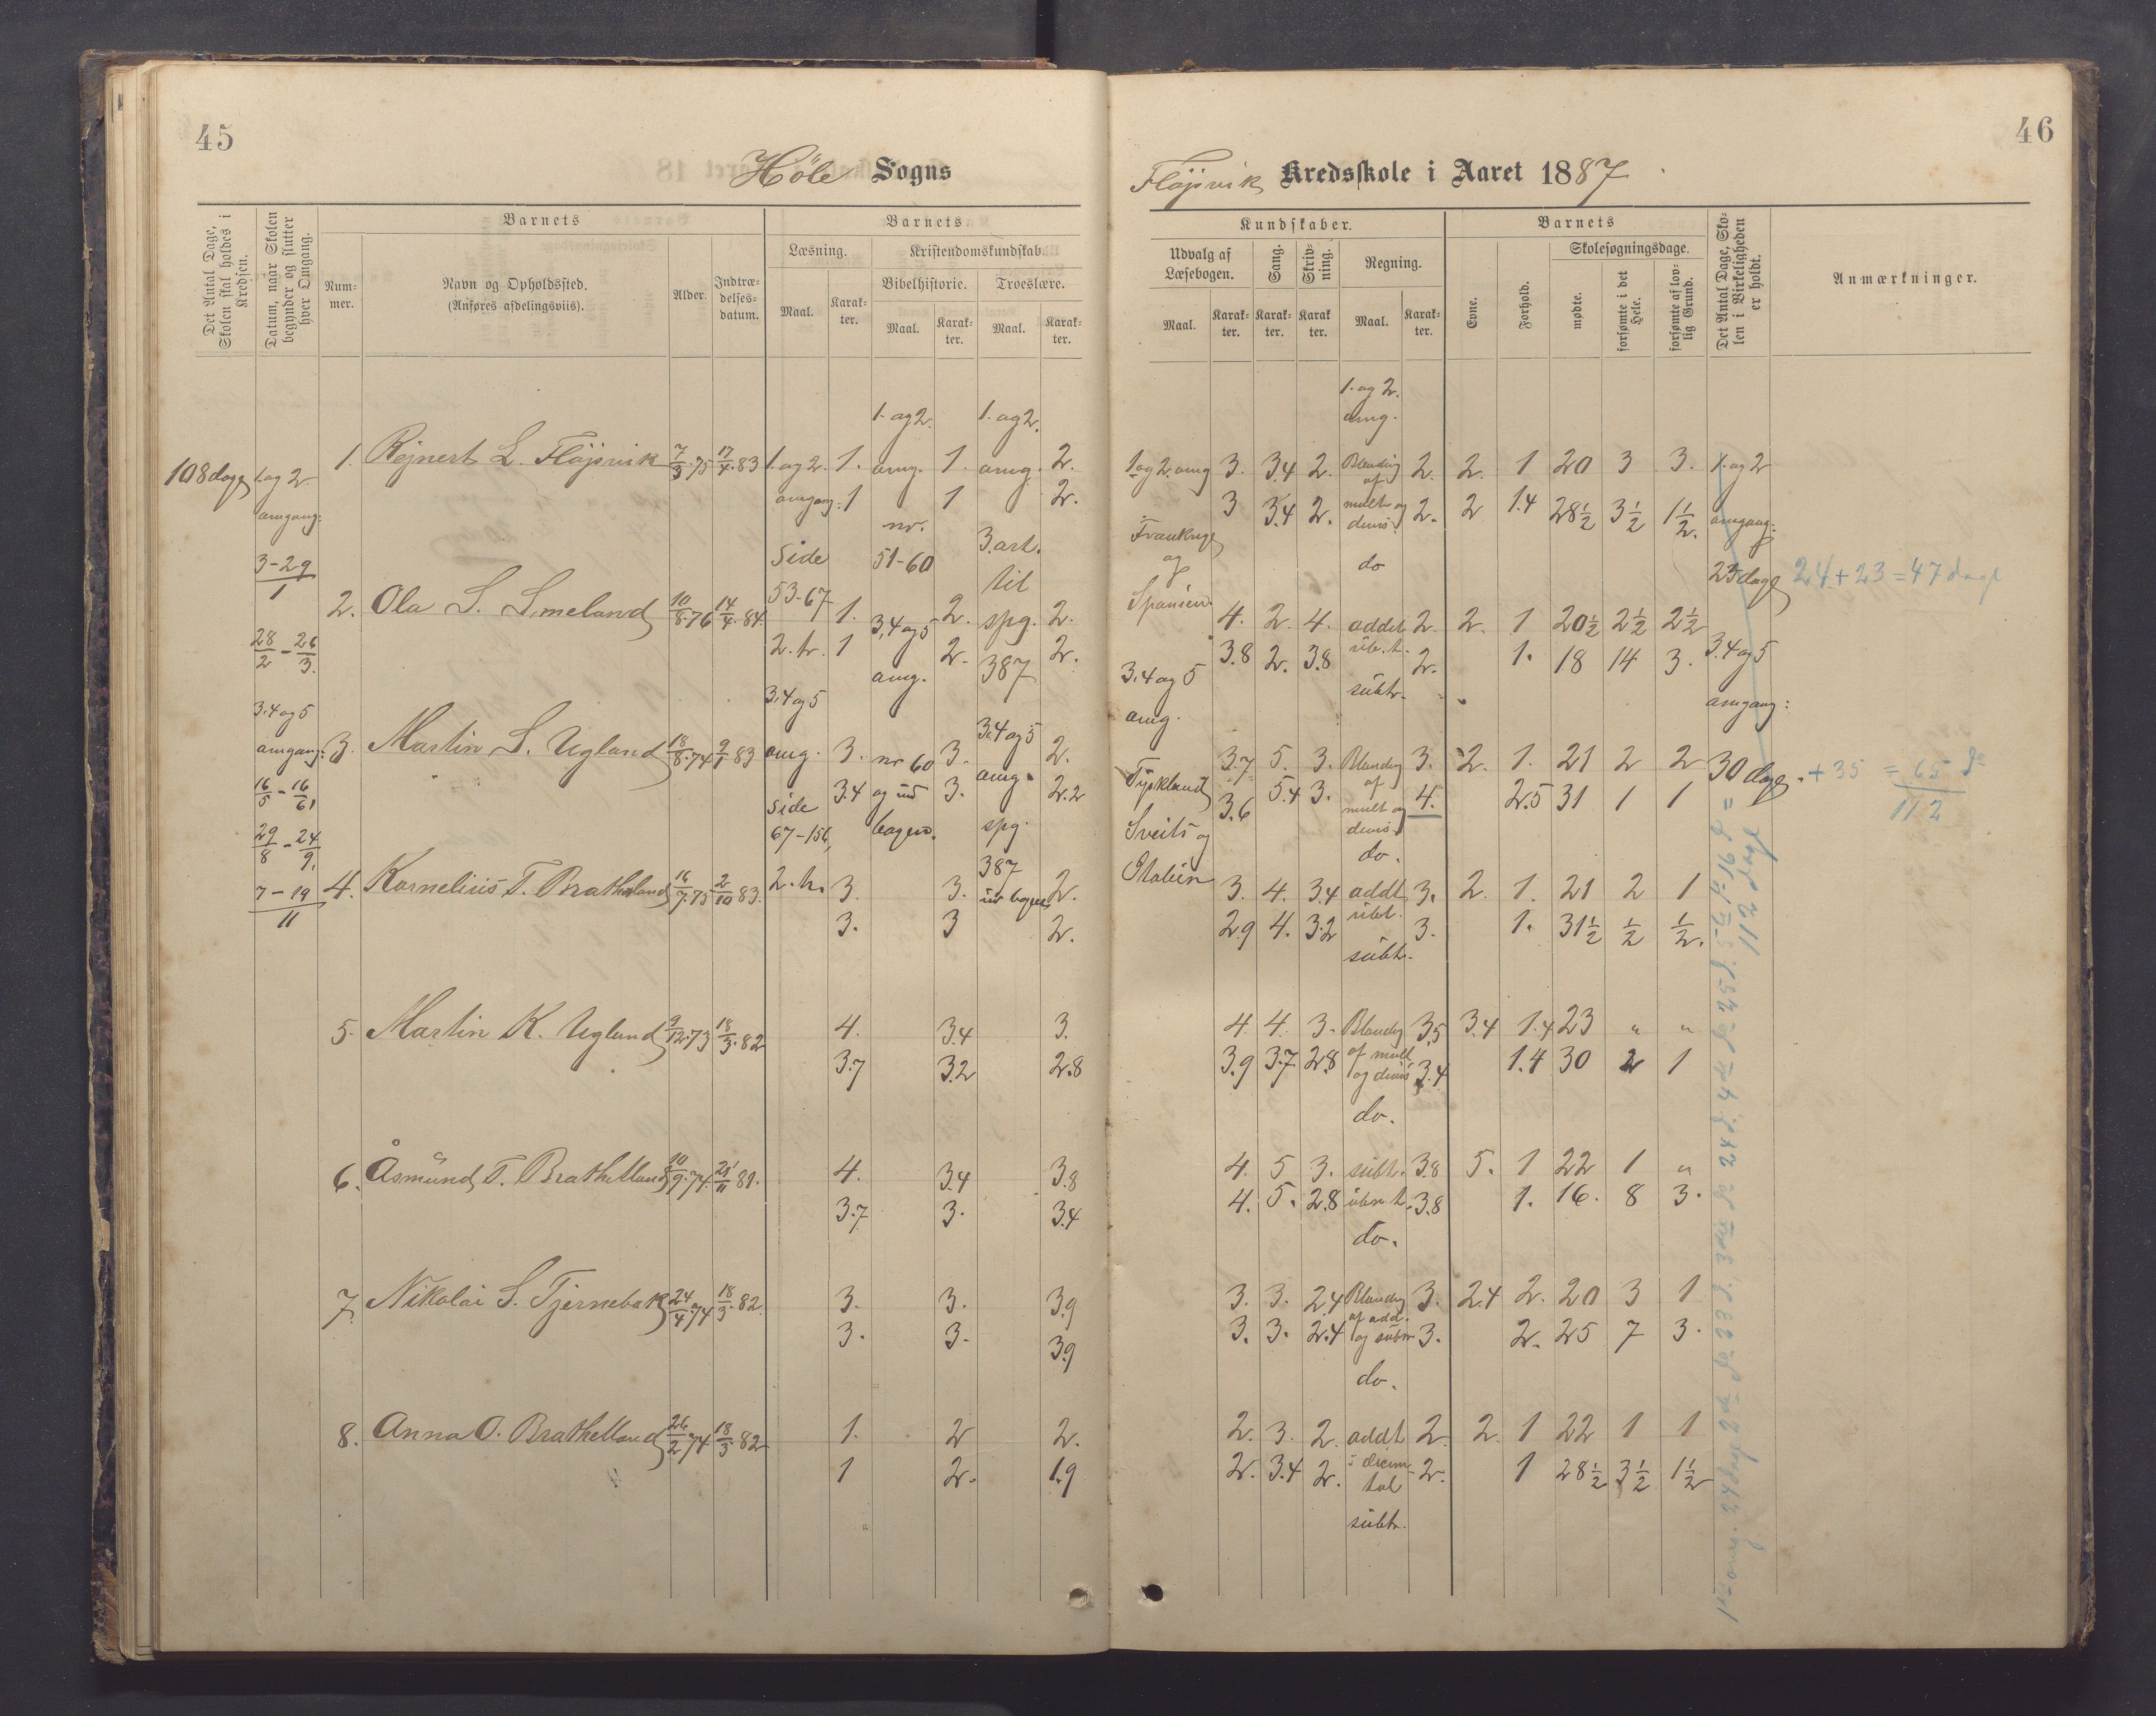 45
Høle Sogns
Det Antal Dage, Skolen skal holdes i Kredsen.
Datum, naar Skolen begynder og slutter hver Omgang.
Barnets
Num-
mer.
Navn og Opholdssted.
(Anføres afdelingsviis).
Alder.
Indtræ-
delses-
datum.
Barnets
Læsning.
Maal.
Karak-
ter.
Kristendomskundskab.
Bibelhistorie.
Troeslære.
Maal.
Karak-
ter.
Maal.
Karak-
ter.
108 dage
1 og 2
omgang:
3-29
1
28/2 - 26/3.
3.4 og 5
omgang:
16/5 - 16/6,
29/8 - 24/9,
7-19
11
1. og 2 omgang.
side
53-67
2. h.
3.4 og 5
omg.
side
67-156,
2. h.
1. og 2.
omg.
nr.
51-60
3,4 og 5
omg.
nr 60
og ud
bogen.
1. og 2.
omg.
3. art.
til
spg.
387
3.4 og 5
omg.
spg.
387
ud bogen
1. Rejnert L. Fløjsvik 7/3.75 17/4.83 1. 1. 2.
1 1 2.
2. Ola S. Smeland 10/8.76 14/4.84. 1. 2. 2.
1 2. 2.
3. Martin S. Ugland 18/8.74 9/1 83 3. 3. 2.
3.4 3. 2.2
4. Kornelius T. Bratheland 16/7.75 2/10 83. 3. 3. 2.
3. 3 2.
5. Martin K. Ugland 9/12.73 18/3.82 4. 3.4 3.
3.7 3.2 2.8
6. Åsmund T. Brathetland 10/9.74. 21/11 81. 4. 3.4 3.8
3.7 3. 3.4
7. Nikolai S. Tjernebak 24/4 74 18/3.82. 3. 3. 3.9
3. 3. 3.9
8. Anna O. Brathetland 26/2 74 18/3 82 1. 2 2.
1 2. 1.9
46
Fløjsvik Kredsskole i Aaret 1887.
Kundskaber.
Udvalg af
Læsebogen.
Maal.
Karak-
ter.
Sang.
Karak-
ter.
Skriv-
ning.
Karak
ter.
Regning.
Maal.
Karak-
ter.
Barnets
Evne.
Forhold.
Skolesøgningsdage.
mødte.
forsømte i det Hele.
forsømte af lov-
lig Grund.
Det Antal Dage, Sko-
len i Virkeligheden
er holdt.
Anmærkninger.
1. og 2.
omg.
1 og 2 omg
Frankrige
og
Spanien
3.4 og 5
omg.
Tyskland
Sveits og
Italien
3. 3.4 2. Blanding af 2. 2. 1 20 3 3.
3 3.4 2. mult og divis. 2. 2 1.4 28½ 3½ 1½.
do
4. 2. 4. addit 2. 2. 1 20½ 2½ 2½
3.8 2. 3.8 2. 1. 18 14 3.
subtr.
3.7 5. 3. Blanding af 3. 2. 1. 21 2 2
3.6 5.4 3. mult og divis. 4. 2.5 31 1 1
do.
3. 4. 3.4 addt 3. 2. 1. 21 2 1
2.9 4. 3.2 3. 1. 31½ ½ ½.
subtr.
4 4. 3. Blanding 3.5 3.4 1.4 23 " "
3.9 3.7 2.8 af mult og divis 3.4 1.4 30 2 1
do.
4. 5 3. subt. 3.8 5. 1 22 1 "
4. 5. 2.8 3.8 1. 16. 8 3.
do.
3. 3. 2.4 Blanding 3. 2.4 2. 20 3 1
3. 3. 2.4 af add. og subtr 3. 2. 25 7 3.
do.
2. 3. 2. addt 2. 2. 1 22 1 1
2. 3.4 2. i decim tal 2. 1 28½ 3½ 1½
subtr.
1. og 2
omgang:
23 dage
3.4 og 5
omgang:
30 dage.
24 + 23 = 47 dage
+ 35 = 65 d
112
112 dage